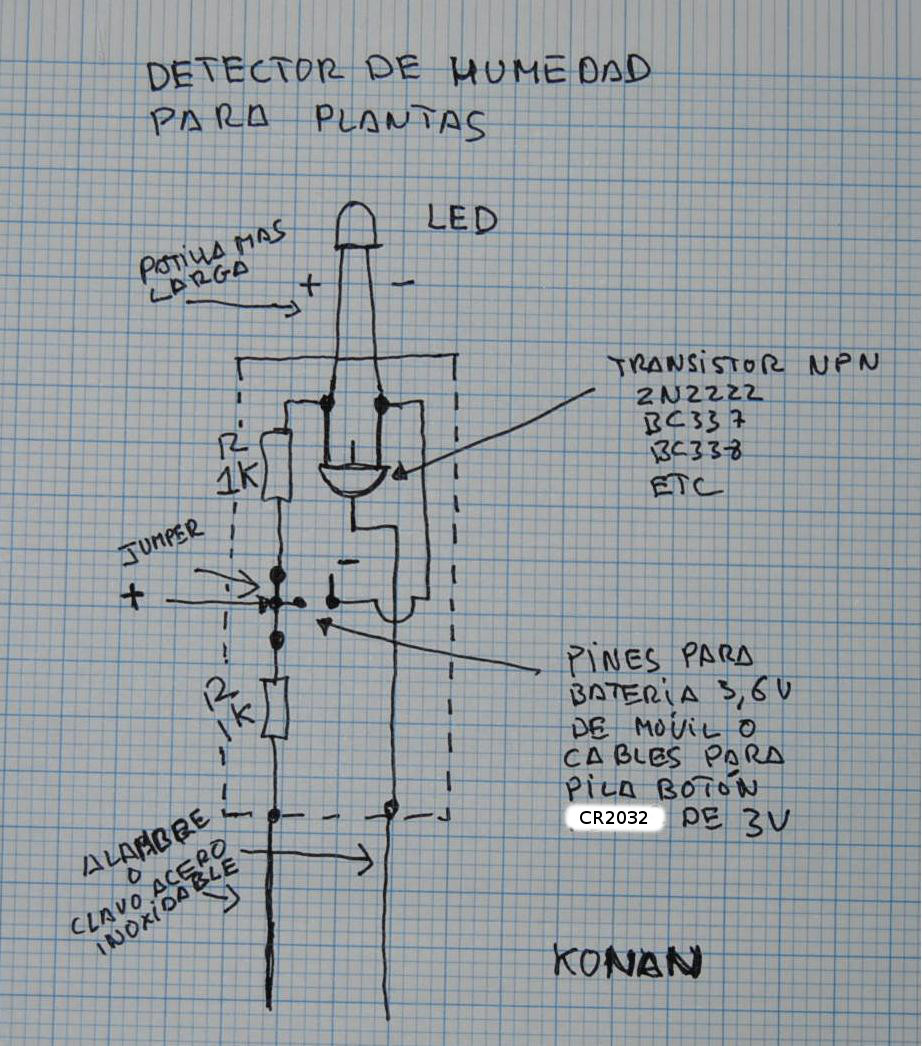 DETECTOR DE HUMEDAD
PARA PLANTAS
LED
PATILLA MAS
LARGA
+
-
TRANSISTOR NPN
2N2222
BC337
BC338
ETC
R
1K
JUMPER
-
+
PINES PARA
BATERIA 3,6V
DE MÓVIL O
CABLES PARA
PILA BOTÓN
CR2032 DE 3V
R
K
ALAMBRE
O
CLAVO ACERO
INOXIDABLE
KONAN